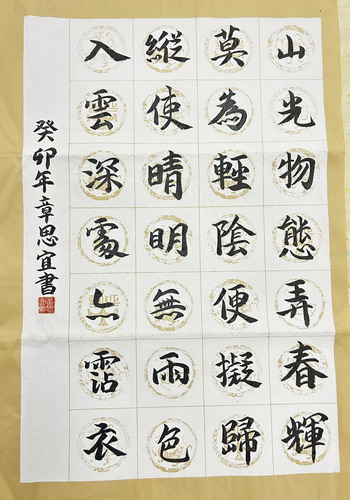 山光物態弄春輝
莫為輕陰便擬歸
縱使晴明無雨色
入雲深處亦霑衣
癸卯年章思宜書